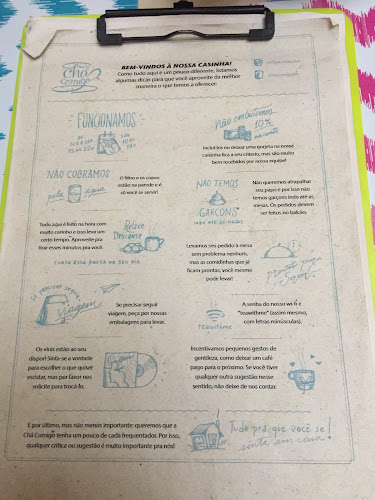 chá
comigo
BEM-VINDOS À NOSSA CASINHA!
Como tudo aqui é um pouco diferente, listamos
algumas dicas para que você aproveite da melhor
maneira o que temos a oferecer:
FUNCIONAMOS
Não cobramos
10%
Incluí-los ou deixar uma gorjeta na nossa
casinha fica a seu critério, mas são muito
bem recebidos por nossa equipe!
NÃO COBRAMOS
pela água
O filtro e os copos
estão na parede e é
só você se servir!
NÃO TEMOS
GARÇONS
Não queremos atrapalhar
seu papo e por isso não
temos garçons indo até as
mesas. Os pedidos devem
ser feitos no balcão.
Tudo aqui é feito na hora com
muito carinho e isso leva um
certo tempo. Aproveite pra
tirar esses minutos pra você.
Relaxe
Descanse
CURTA ESSA PAUSA NO SEU DIA
Levamos seu pedido à mesa
sem problema nenhum,
mas as comidinhas que já
ficam prontas, você mesmo
pode levar!
Se precisar seguir
Viagem
Se precisar seguir
viagem, peça por nossas
embalagens para levar.
teawithme
A senha do nosso wi-fi é
"teawithme" (assim mesmo,
com letras minúsculas).
Os vinis estão ao seu
dispor! Sinta-se a vontade
para escolher o que quiser
escutar, mas por favor nos
solicite para trocá-lo.
Incentivamos pequenos gestos de
gentileza, como deixar um café
pago para o próximo. Se você tiver
qualquer outra sugestão nesse
sentido, não deixe de nos contar.
E por último, mas não menos importante: queremos que a
Chá Comigo tenha um pouco de cada frequentador. Por isso,
qualquer crítica ou sugestão é muito importante pra nós!
Tudo pra que você se
sinta em casa!